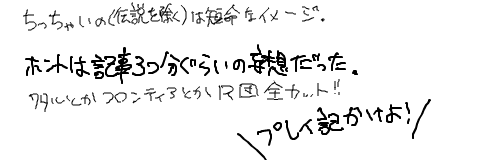 ちっちゃいの(伝説を除く)は短命なイメージ.
ホントは記事3つ分ぐらいの妄想だった.
ワタルとかフロンティアとかR団全カット!!
\プレイ記かけよ!/